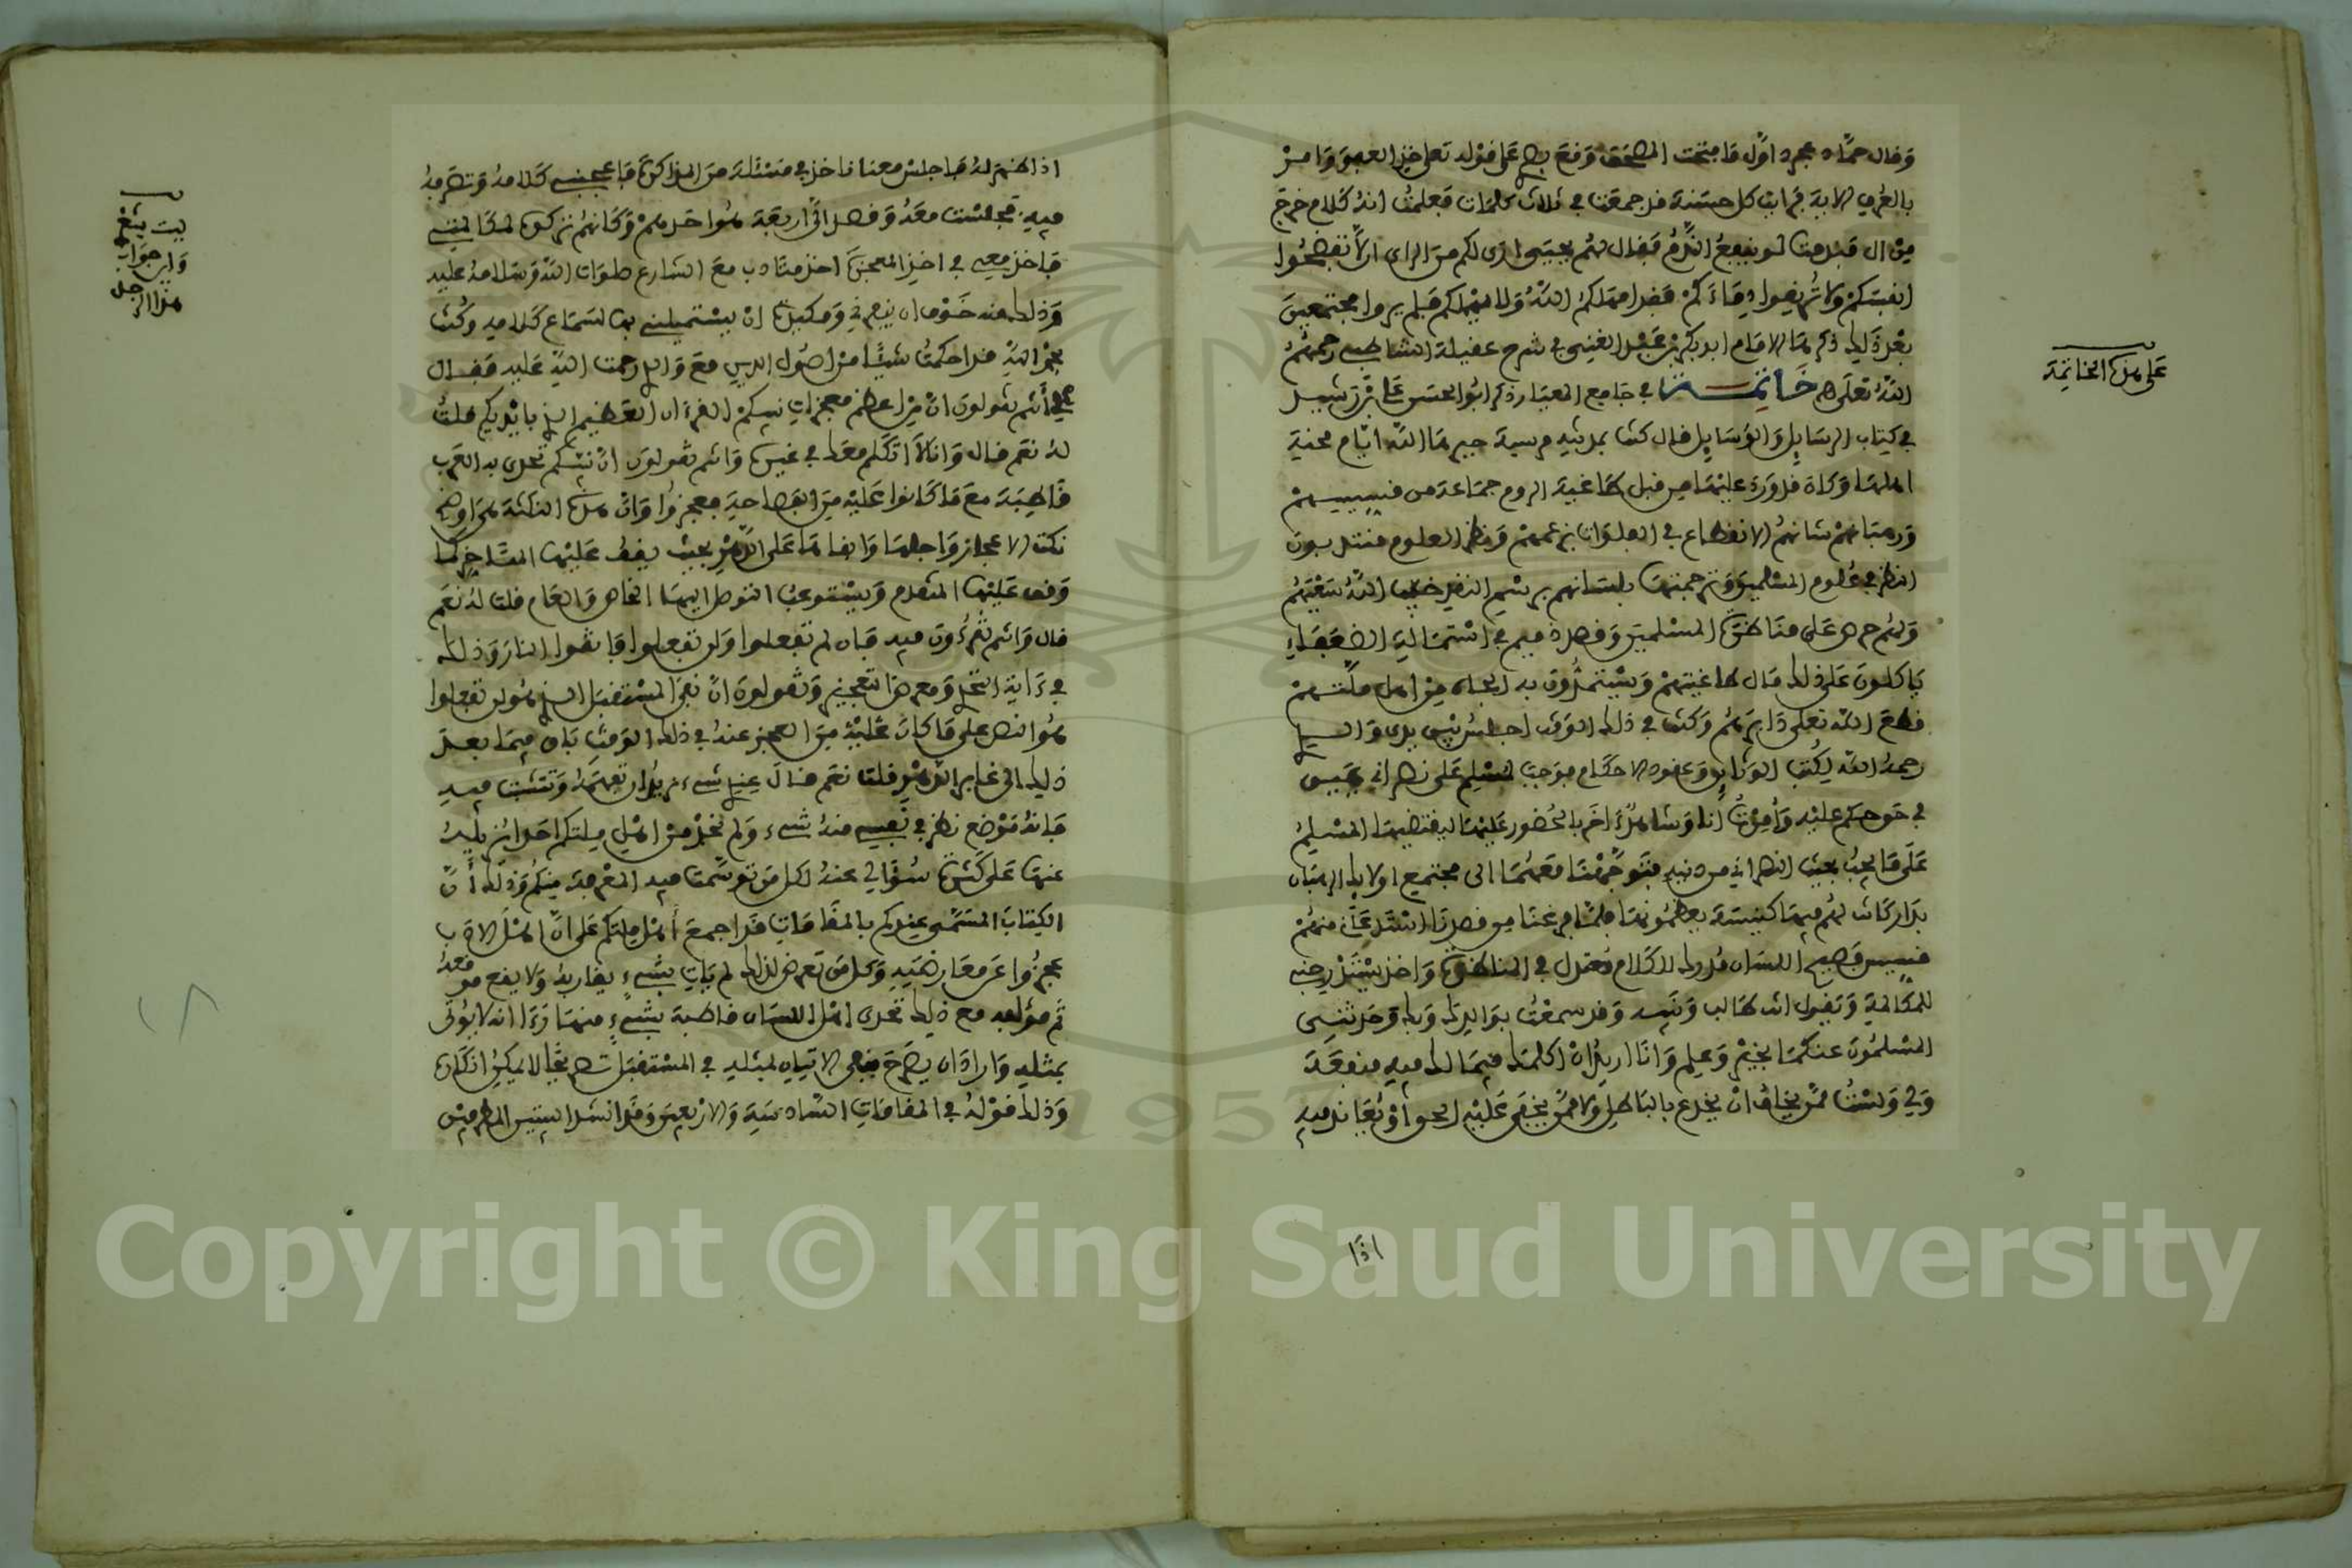 وقال حماد عجرد اول ما فتحت المصحف وقع بصري على قوله تعلى خذ العفو وامر
بالعرف الاية فرايت كل حسنة قد جمعت في ثلاث كلمات فعلمت انه كلام خرج
من ال قبل متا لو ينفع الندم فقال لهم يحيى ارى لكم من الراي الا تفضحوا
انفسكم ولا تريقوا دماءكم فقد امهلكم الله ولا يمهلكم فلم يروا مجتمعين
بعد ذلك ذكرهما الامام ابو بكر بن عبد الغني في شرح عقيلة الشاطبي رحمهم
الله تعلى خاتمة في جامع المعيار ذكر ابو الحسن علي بن رشيد
في كتاب الرسايل والوسايل قال كنت بمدينة مرسية جبرها الله ايام محنة
اهلها وكان قد ورد عليها من قبل طاغية الروم جماعة من قسيسيهم
ورهبانهم شانهم الانقطاع في العبادات بزعمهم ونظر العلوم منتدبون
النظر في علوم المسلمين وترجمتها بلسانهم برسم النقد خيب الله سعيهم
ولهم حرص على مناظرة المسلمين وقصد ذميم في استمالة الضعفاء
ياكلون على ذلك مال طاغيتهم ويستمدون به الجاه من اهل ملتهم
قطع الله تعلى دابرهم وكنت في ذلك الوقت اجلس بين يدي والدي
رحمه الله لكتب الوثايق وعقود الاحكام فوجبت لمسلم على نصراني يمين
في حق حكم عليه وامرت انا وشاهد اخر بالحضور عليها ليقتضيها المسلم
على ما يجب بحيث النصراني من دينه فتوجهنا معهما الى مجتمع اولايك الرهبان
بدار كانت لهم فيها كنيسة يعظمونها فلما فرغنا من قصدنا استدعاني منهم
قسيس فصيح اللسان مدرك للكلام معتدل في المناظرة واخذ يستدرجني
للمكالمة ويقول انت طالب ونبيه وقد سمعت بوالدك وبك وحدثني
المسلمون عنكما بخير وعلم وانا اريد ان اكلمك فيما لك فيه منفعة
ولي ولست ممن يخاف ان يخدع بالباطل ولا ممن يخفى عليه الحق او يعاند فيه
اذا
على هذه الخاتمة
اذا ظهر له فاجلس معنا ناخذ في مسئلة من المذاكرة فاعجبني كلامه وتصرفه
فيه فجلست معه وقصد الي اربعة هو احدهم وكانهم تركوه لمكالمتي
فاخذ معي في اخذ المعجزة اخذ متادب مع الشارع صلوات الله وسلامه عليه
وذلك منه خوف ان ينفرني ومكيدة ان يستميلني بها لسماع كلامه وكنت
بحمد الله قد احكمت شيئا من اصول الدين مع والدي رحمت الله عليه فقال
لي انتم تقولون ان من اعظم معجزات نبيكم القرءان العظيم الذي بايديكم قلت
له نعم قال وانا لا اتكلم معك في غيره وانتم تقولون ان نبيكم تحدى به العرب
قاطبة مع ما كانوا عليه من الفصاحة فعجزوا وان هذه النكتة هي اوضح
نكت الاعجاز واجلها وابقاها على الدهر بحيث يقف عليها المتاخر كما
وقف عليها المتقدم ويستوعب التوصل اليها الخاص والعام قلت له نعم
قال وانتم تقرءون فيه فان لم تفعلوا ولن تفعلوا فاتقوا النار وذلك
في ءاية التحدي ومعرض التعجيز وتقولون ان نفي المستقبل الذي هو لن تفعلوا
هو انص على ما كان عليه من العجز عنده في ذلك الوقت باق فيما بعد
ذلك الى غابر الدهر قلت نعم قال عندي شيء يريد ان تفهمه وتتثبت فيه
فانه موضع نظر في نفسي منه شيء ولم نجد من اهل ملتكم احدا يزيله
عنها على كثرة سؤالي عنه لكل من توسمت فيه المعرفة منكم وذلك ان
الكتاب المسمى عندكم بالمقامات قد اجمع اهل ملتكم على ان اهل الادب
عجزوا عن معارضته وكل من تعرض لذلك لم يات بشيء يقاربه ولا يقع موقعه
ثم مؤلفه مع ذلك تحدى اهل اللسان قاطبة بشيء منها ورءا انه لا يؤتى
بمثله واراد ان يصرح بنفي الاتيان لمثله في المستقبل تصريحا لا يمكن انكاره
وذلك قوله في المقامات السادسة والاربعين وقد انشد البيتين المطرفين
بيت يتعز
واين جواب
هذا الرجل